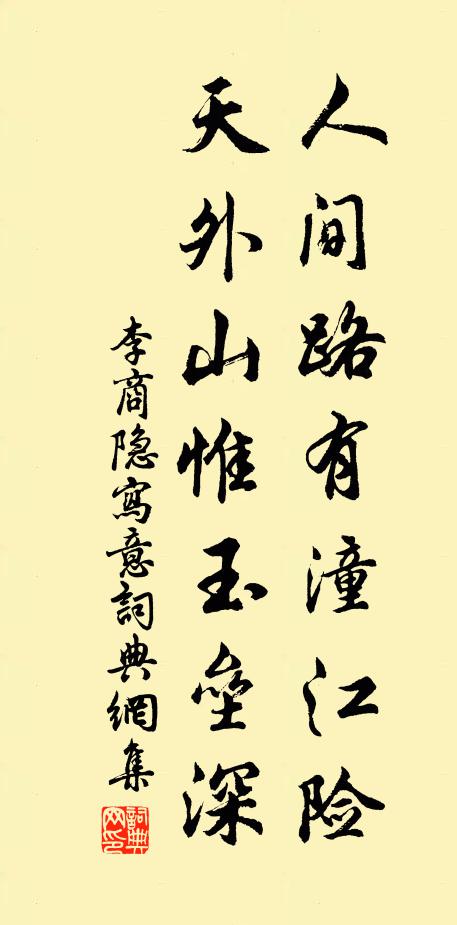 人间路有潼江险
天外山惟玉垒深
李商隐寫意詞典網集
詞典网印